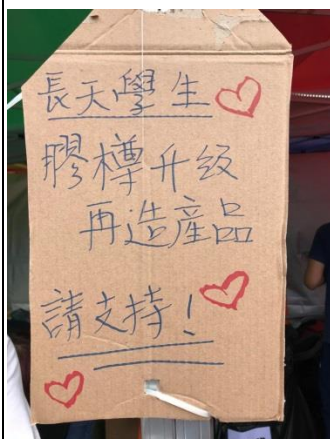 長天學生
膠樽升级
再造產品
請支持！